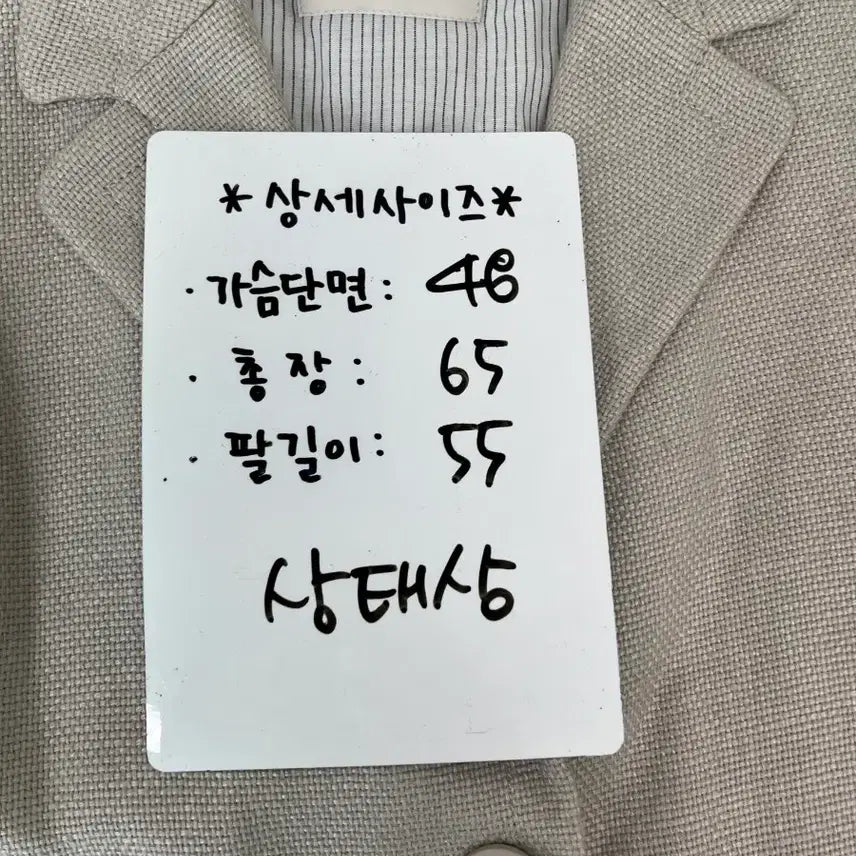 *상세사이즈*
· 가슴단면: 46
· 총장: 65
· 팔길이: 55
상태상